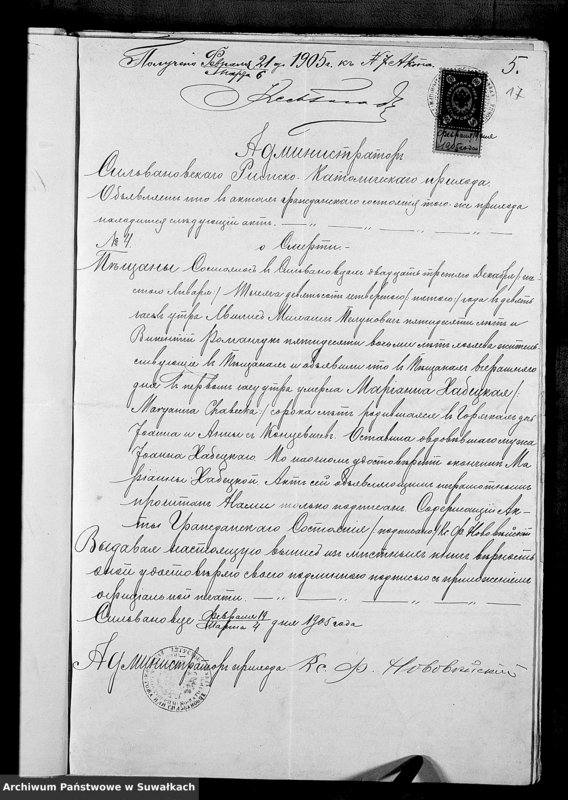 Получено Февраля 21 д. 1905 г. къ № 7 Акта.
Марта 6
5.
17
Администраторъ
Сильвановскаго Римско-Католическаго прихода
Объявляетъ что въ актахъ гражданскаго состоянія того-же прихода
находится слѣдующій актъ.
№ 4. о Смерти
Мѣщаны Состоялось въ Сильвановцахъ двадцать третьяго Декабря / пя-
таго Января / Тысяча девятьсотъ четвертаго / пятаго / года въ девять
часовъ утра Явились пятидесяти лѣтъ и
Викентій Романчукъ пятидесяти восьми лѣтъ житель-
ствующіе въ Мѣщанахъ и объявили что въ Мѣщанахъ вчерашняго
дня въ первомъ часу утра умерла Маріанна Хавецкая /
Маryanna / сорока лѣтъ родившаяся въ дочь
Іоанна и Анны съ Оставила овдовѣвшаго мужа
Іоанна Хавецкаго По настояномъ удостовѣреніи окончины Ма-
ріанны Хавецкой Актъ сей объявляющимъ неграмотнымъ
прочитанъ Нами только подписанъ. Содержащій Ак-
ты Гражданскаго Состоянія / подписано / Кс. Ф. Нововѣйскій
Выдавая настоящую выпись изъ мѣстныхъ книгъ вѣрность
оной удостовѣряю своею подлинною подписью съ приложеніемъ
оффиціальной печати.
Сильвановце Февраля 19 дня 1905 года
Марта 4
Администраторъ прихода Кс. Ф. Нововѣйскій
Archiwum Państwowe w Suwałkach